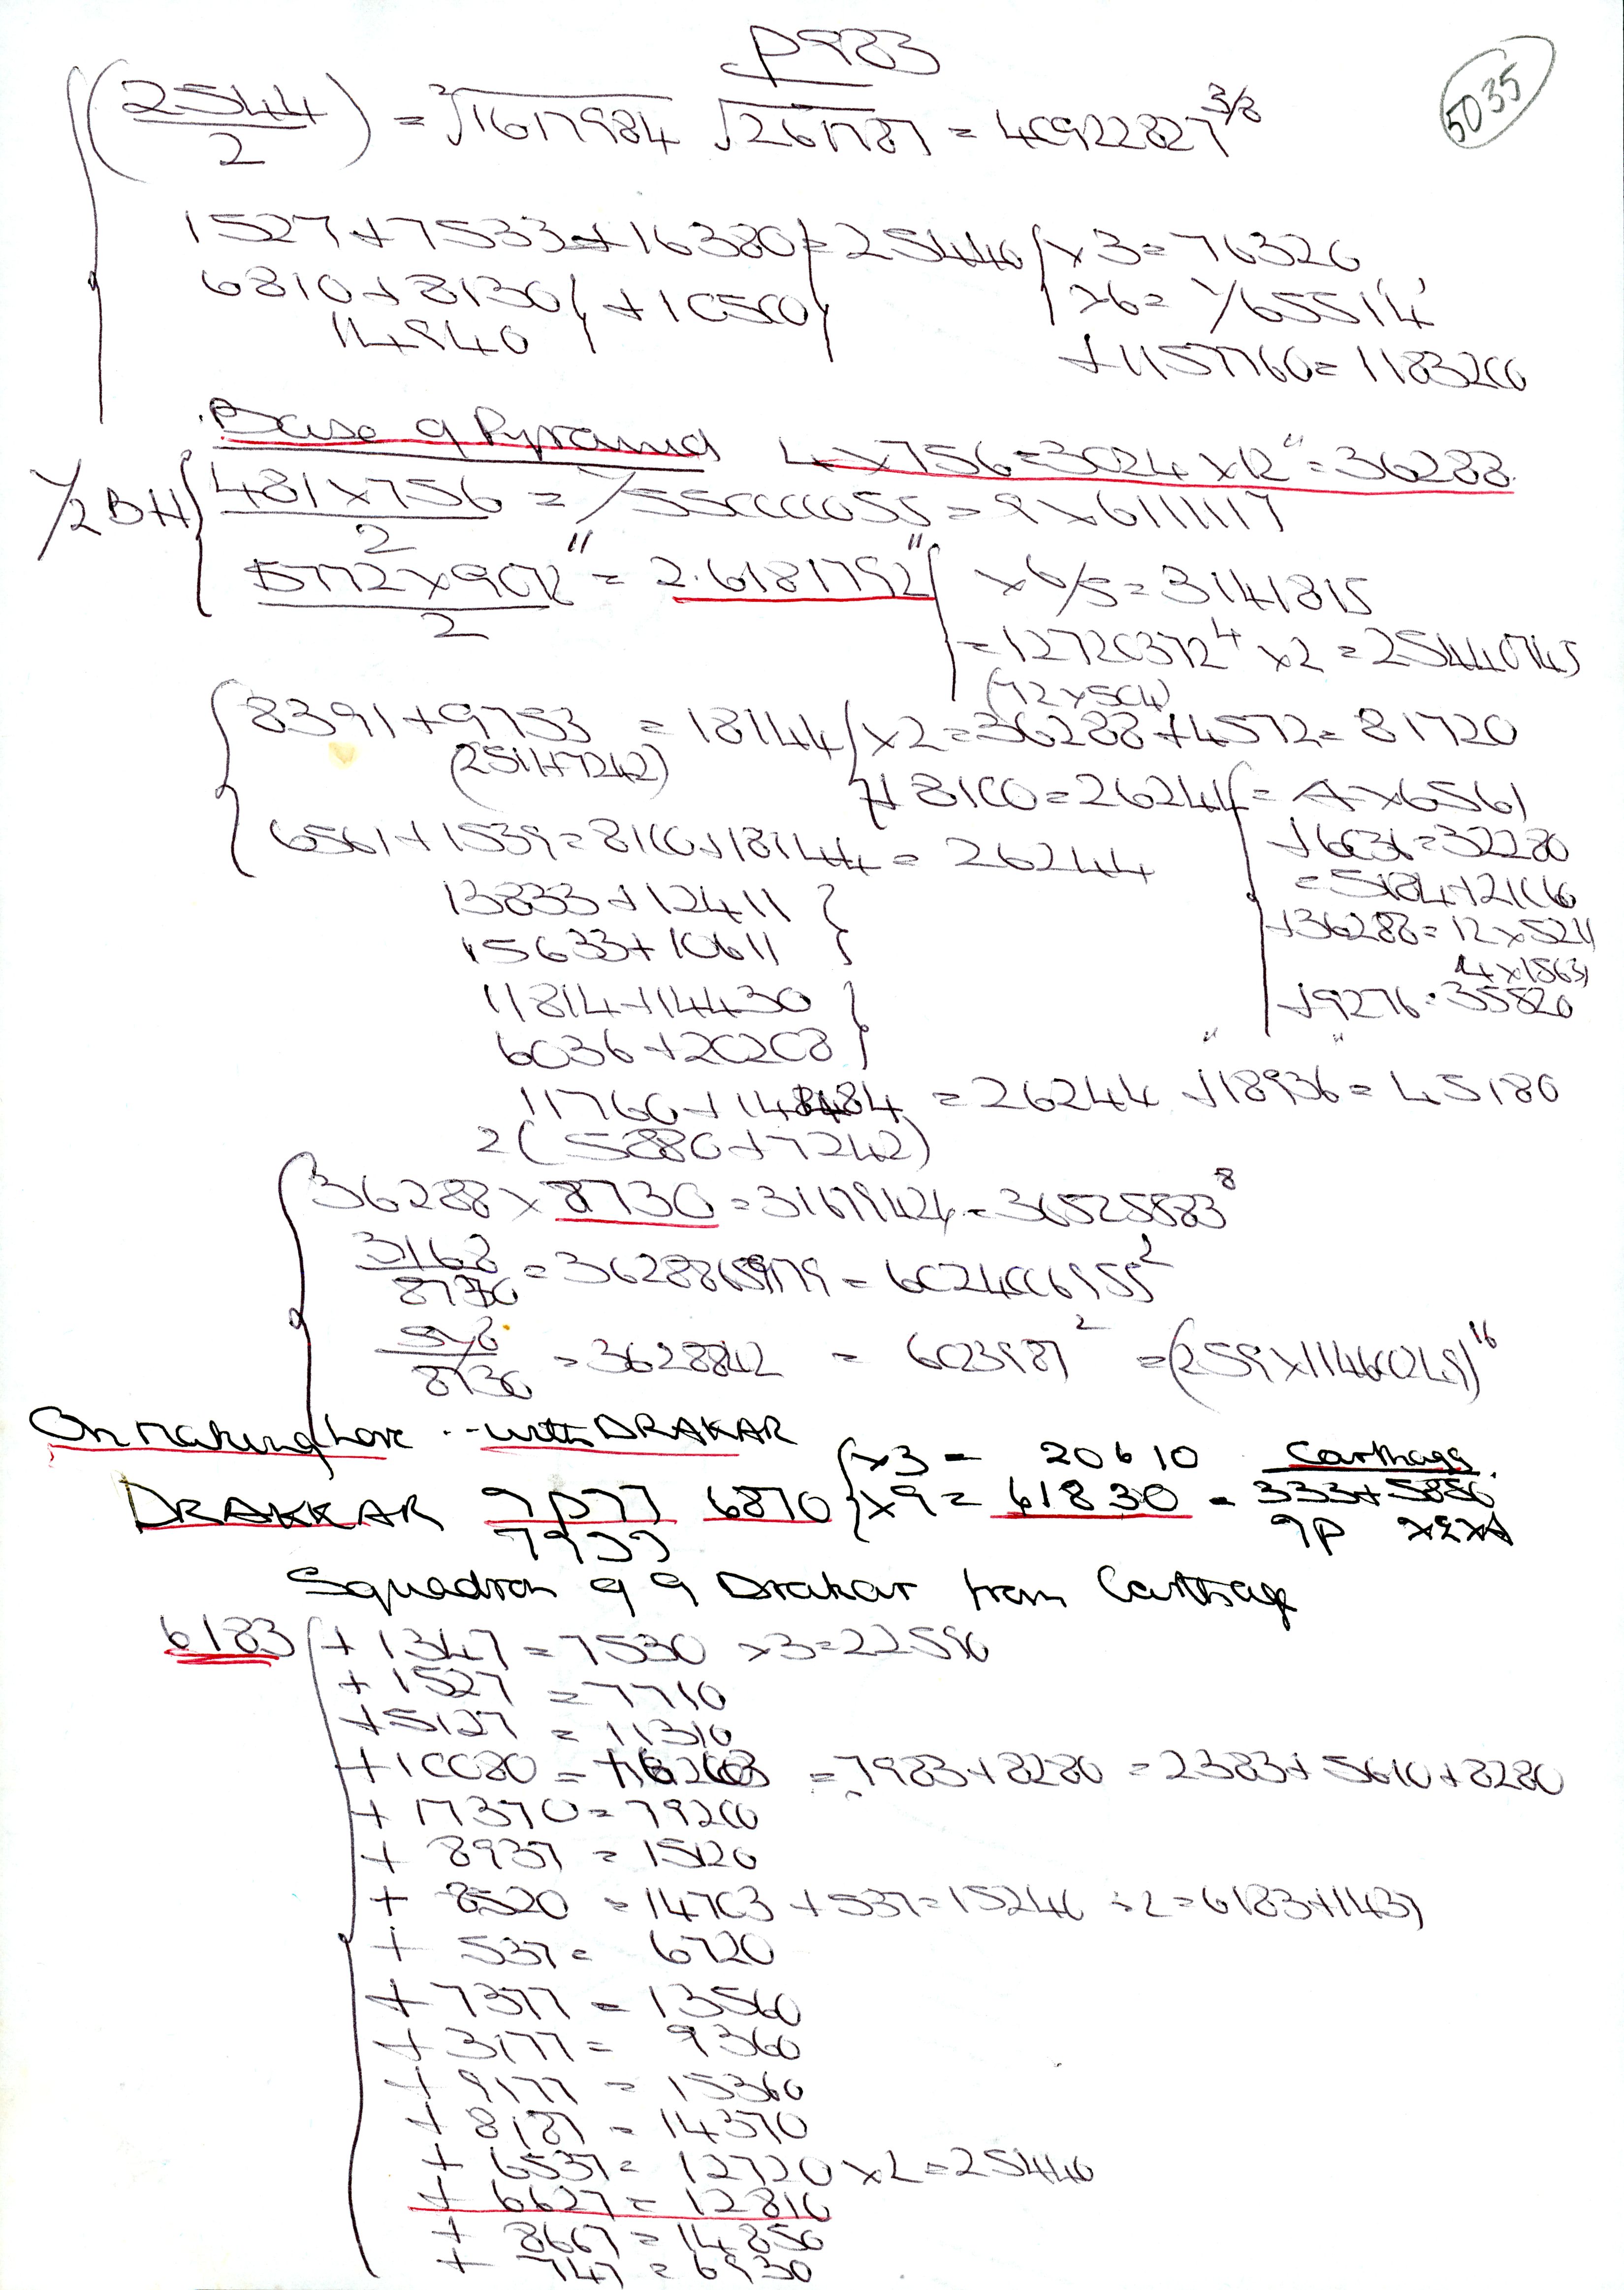 p983
5035
(2544/2) = ³√1617984 √261787 = 40922827^3/8
1527+7533+16380 = 25440 ×3=76320
6810+8130 +10500 ×6= 1/65514
14940 +1157760=1183200
Base of Pyramid 4×756=3024×12"=36288
1/2BH 481×756/2 = 1/550000055=9×6111117
5772×9072"/2 = 2.6181792" ×6/5=3141815
=12720372^4 ×2=254407145
(72×504)
8391+9753 = 18144 ×2=36288+4572=81720
(2511+7242) +8100=26244=4×6561
6561+1539=8100+18144=26244 +6036=32280
13833+12411 =5184+21060
15633+10611 +36288=12×5211
4×1563
11814+14430 +9276=35820
6036+20208
11760+14484 = 26244 +18936=45180
2(5880+7242)
36288×8730=3167942=36525883^8
3168/8730 = 3628865979=6024006955^2
/8730 =3628842 = 6023987^2 =(259×11460249)^16
On making Love .. with DRAKAR
×3= 20610 Carthage
DRAKKAR 9P77 6870 ×9= 61830 = 333+5850
7977 9P ×2×A
Squadron of 9 Drakar from Carthage
6183 + 1347=7530 ×3=22590
+ 1527 =7710
+5127 = 11310
+10080=16263 =7983+8280=2383+5610+8280
+ 17370=79200
+ 8937 = 15120
+ 8520 =14703+537=15240 ÷2=6183+1437
+ 537= 6720
+ 7377 = 13560
+ 3177= 9360
+ 9177 = 15360
+ 8187 = 14370
+ 6537= 12720×2=25440
+ 6627= 12810
+ 8667=14850
+ 747 = 6930